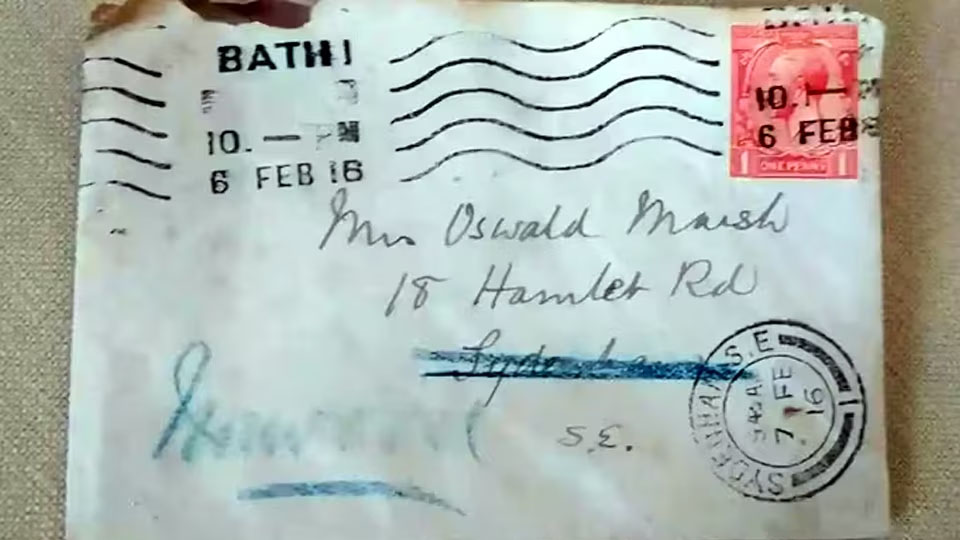 BATH 1
10. — PM
6 FEB 16
10. —
6 FEB
1 ONE PENNY 1
Mrs Oswald Marsh
18 Hamlet Rd
Sydenham
S.E.
SYDENHAM S.E.
7 FE
16